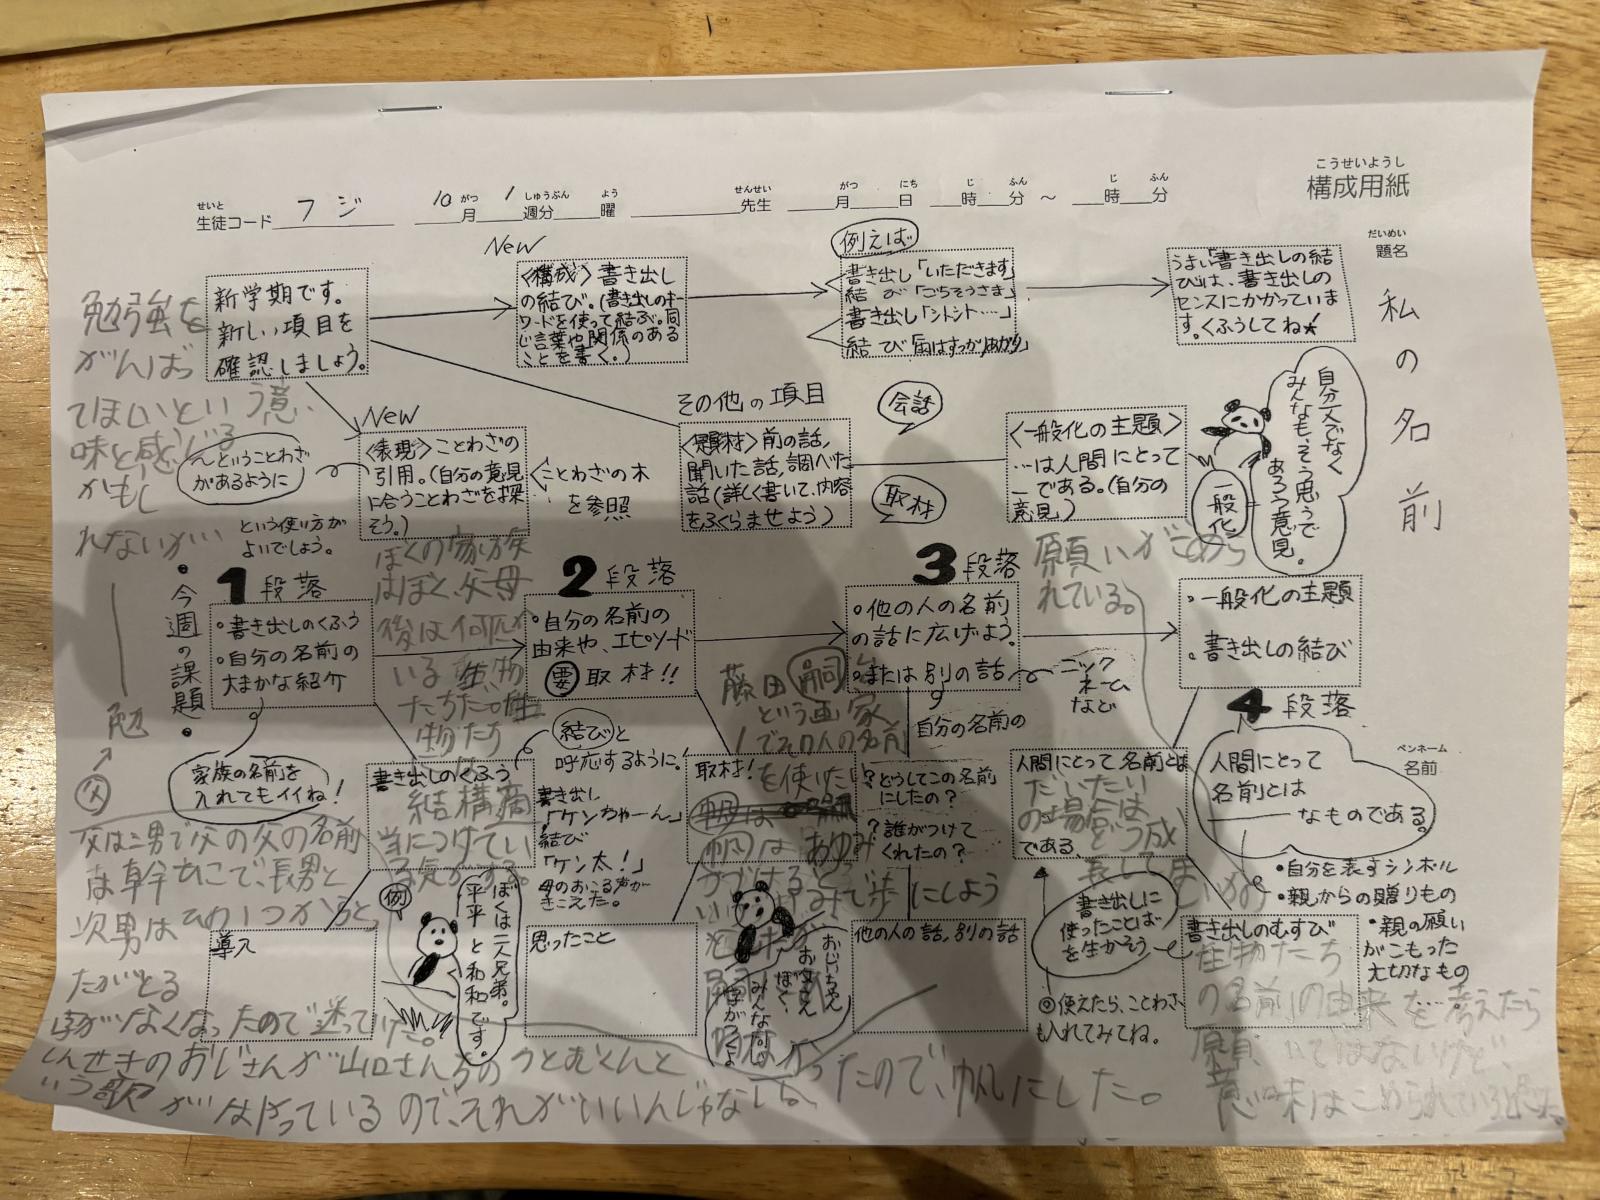 こうせいようし
構成用紙
せいと
生徒コード フジ
がつ しゅうぶん よう
10月 1週分 曜
せんせい
先生
がつ にち じ ふん じ ふん
月 日 時 分 〜 時 分
だいめい
題名
私の名前
ペンネーム
名前
新学期です。
新しい項目を
確認しましょう。
New
〈構成〉書き出し
の結び。(書き出しのキー
ワードを使って結ぶ。同
じ言葉や関係のある
ことを書く。)
例えば
書き出し「いただきます」
結 び「ごちそうさま」
書き出し「シトシト…」
結 び
うまい「書き出しの結
び」は、書き出しの
センスにかかっていま
す。くふうしてね★
New
〈表現〉ことわざの
引用。(自分の意見
に合うことわざを探
そう。)
ことわざの木
を参照
〜ということわざ
があるように
という使い方が
よいでしょう。
その他の項目
〈題材〉前の話、
聞いた話、調べた
話(詳しく書いて、内容
をふくらませよう)
会話
取材
〈一般化の主題〉
…は人間にとって
―である。(自分の
意見)
一般化
自分一人でなく
みんなも、そう思うで
あろう意見。
・今週の課題・
1段落
・書き出しのくふう
・自分の名前の
大まかな紹介
家族の名前を
入れてもイイね!
2段落
・自分の名前の
由来や、エピソード
要取材!!
3段落
・他の人の名前
の話に広げよう。
・または別の話
自分の名前の
ニック
ネーム
など
・一般化の主題
・書き出しの結び
4段落
人間にとって
名前とは
なものである。
・自分を表すシンボル
・親からの贈りもの
・親の願い
がこもった
大切なもの
書き出しのくふう
結びと
呼応するように!
書き出し
「ケンちゃーん」
結び
「ケン太!」
母のおこる声が
きこえた。
取材!
?どうしてこの名前
にしたの?
?誰がつけて
くれたの?
人間にとって名前とは
である、
導入
例
ぼくは二人兄弟。
平平と和和です。
思ったこと
おじいちゃん
お父さん
ぼく、
みんな同じ
字がつくよ
他の人の話、別の話
書き出しに
使ったことば
を生かそう
◎使えたら、ことわざ
も入れてみてね。
書き出しのむすび
勉強を
がんばっ
てほしいという意
味と感じる
かもし
れないが…
勉
父
父は三男で父の父の名前
は幹
で、長男と
次男は
たがとる
字がなくなったので迷ってい
しんせきのおじさんが山口さんちのつとむくんと
いう歌がはやっているので、それがいいんじゃない
ぼくの家族
はぼく、父母
後は何匹か
いる生物
たちだ。
物たち
結構適
当につけてい
る気がする。
藤田嗣治
という画家
でその人の名前
を使いたい
帆はあゆみ
ったので、帆にした。
願いがこめら
れている。
だいたい
の場合は
の名前の由来を考えたら
願いではないけど、
意味はこめられている